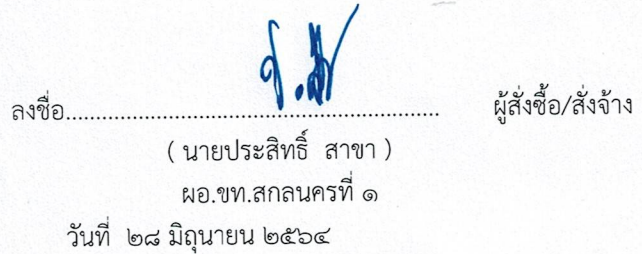 ลงชื่อ................................................................ ผู้สั่งซื้อ/สั่งจ้าง
( นายประสิทธิ์ สาขา )
ผอ.ขท.สกลนครที่ ๑
วันที่ ๒๘ มิถุนายน ๒๕๖๔